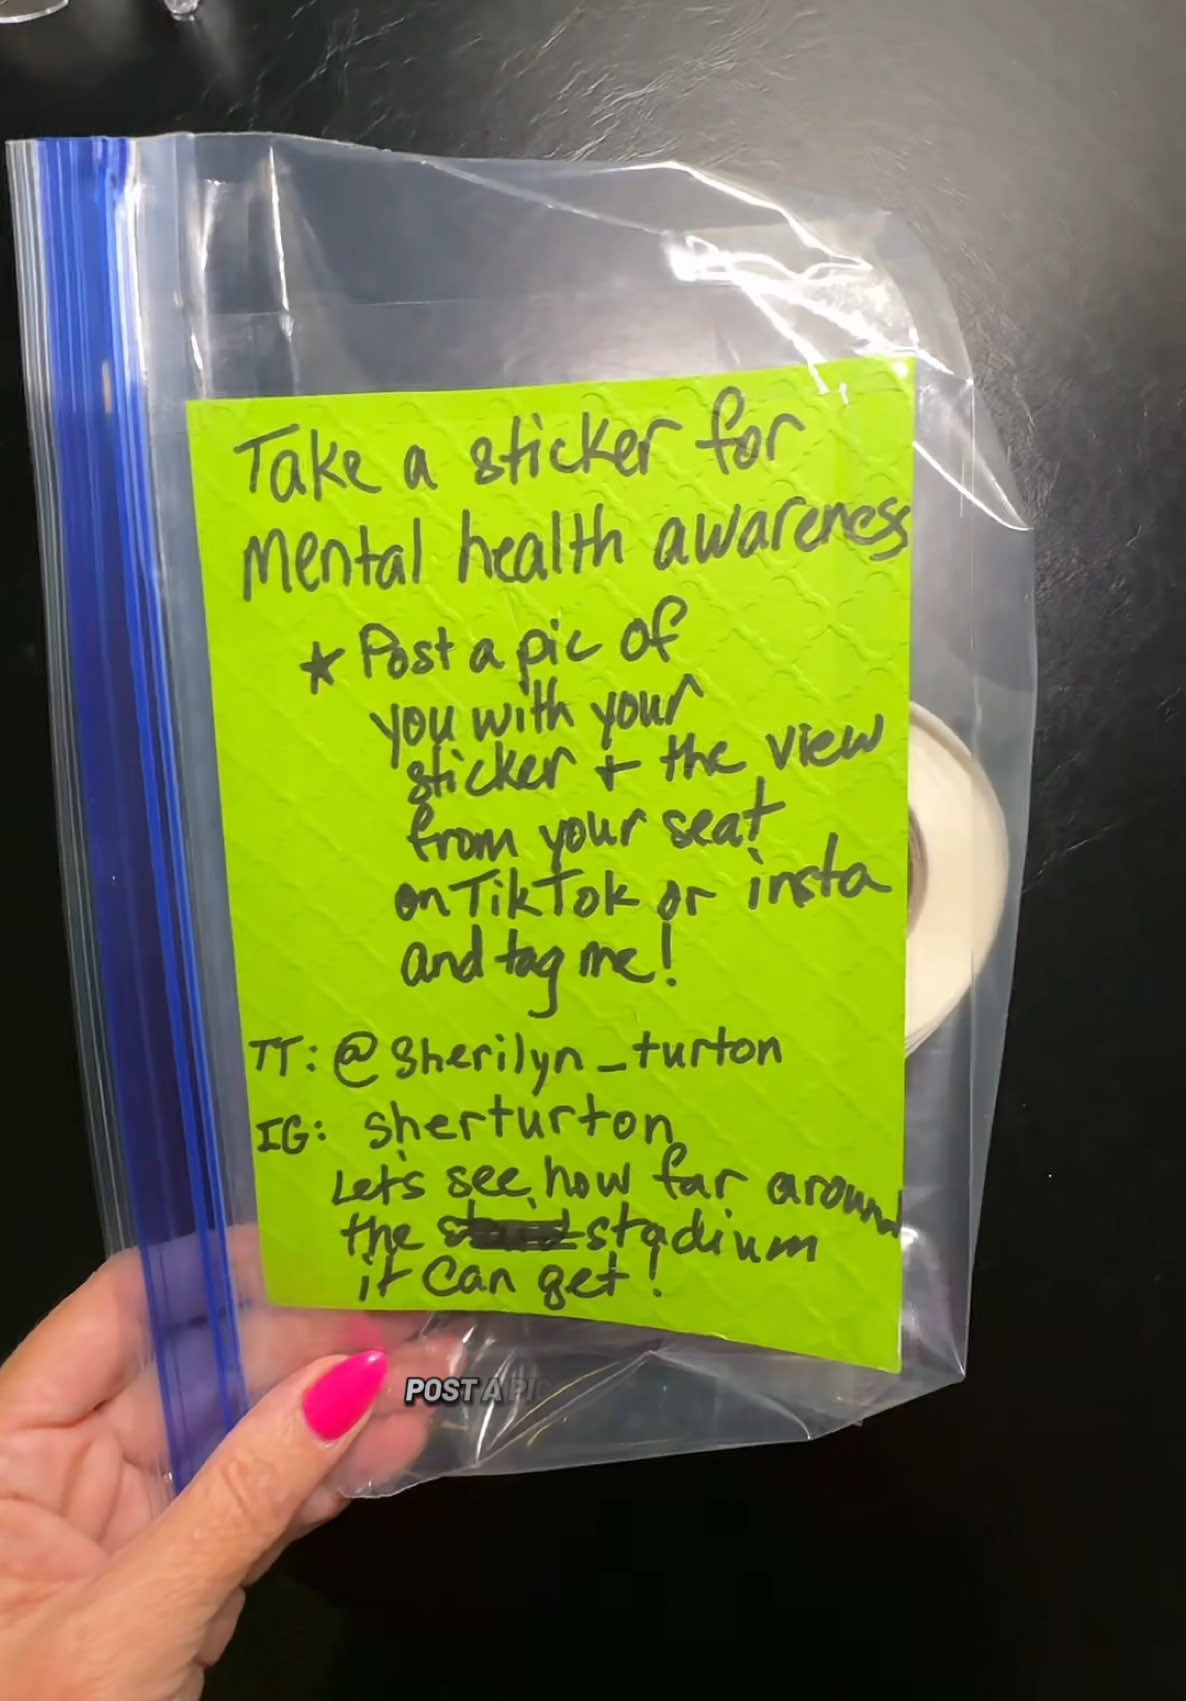 Take a sticker for
mental health awareness
* Post a pic of
you with your
sticker + the view
from your seat
on TikTok or insta
and tag me!
TT: @sherilyn_turton
IG: sherturton
Let's see how far around
the stadium
it can get!
POST A PIC